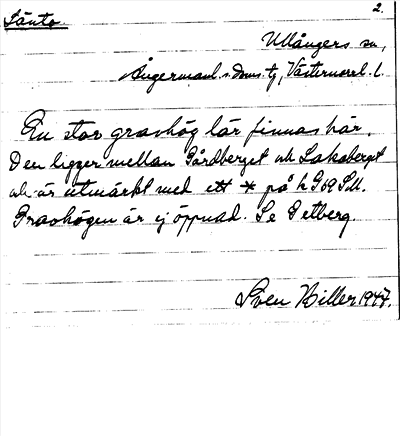 Sänta 2.
Ullångers sn,
Ångermanl. s. doms. tg, Västernorrl. l.
En stor gravhög lär finnas här.
Den ligger mellan Gårdberget och Laksberget
och är utmärkt med ett * på k G 69 S.U.
Gravhögen är ej öppnad. Se Detberg.
Sven Biller 1947.